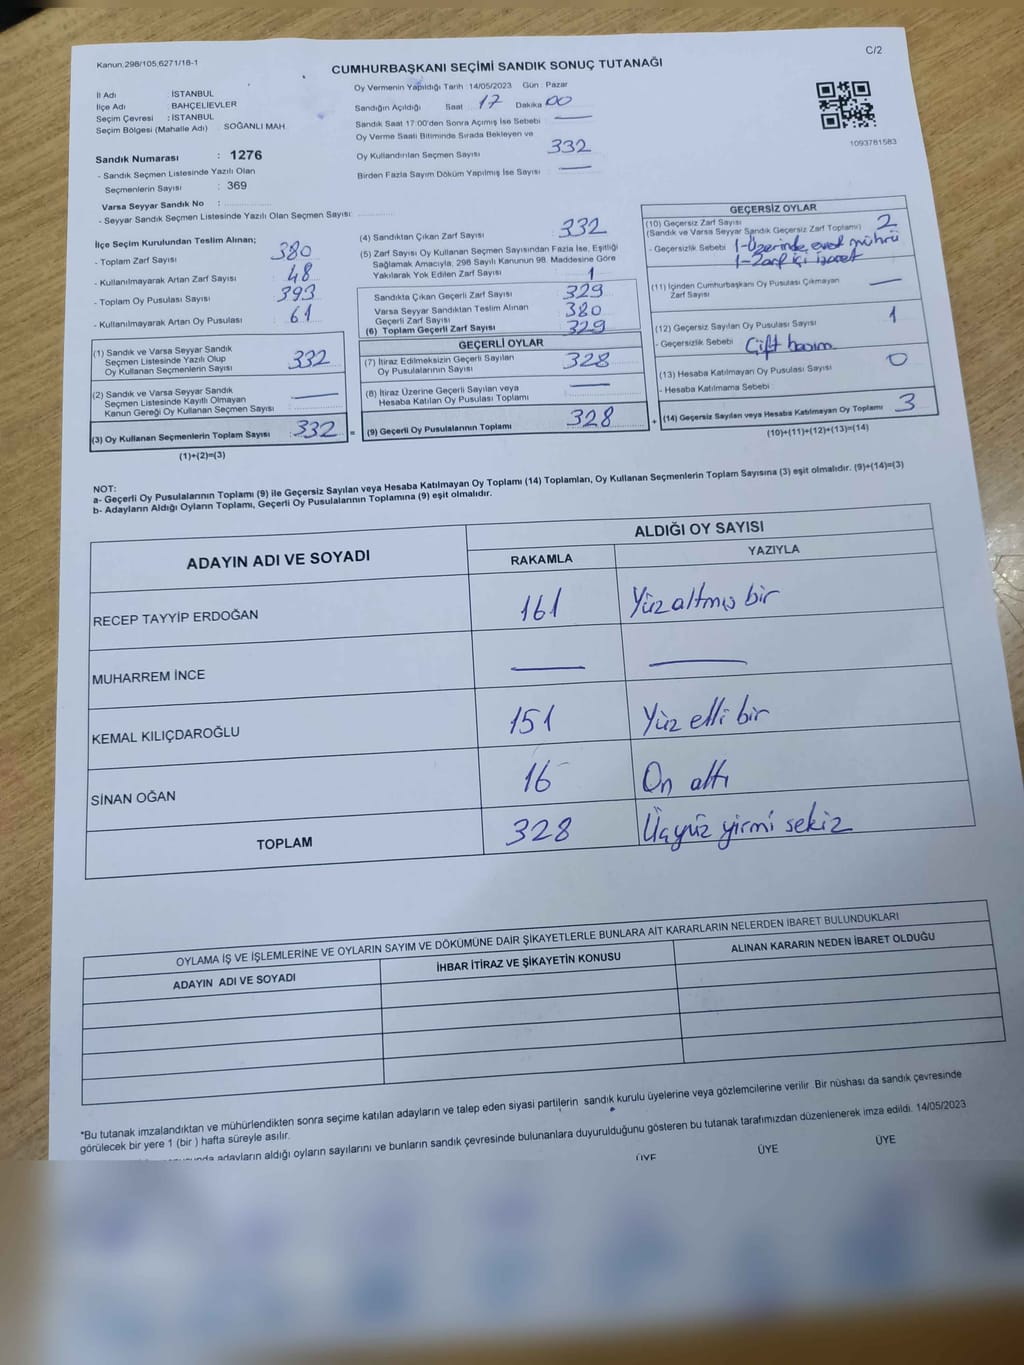 Kanun.298/105,6271/18-1
C/2
CUMHURBAŞKANI SEÇİMİ SANDIK SONUÇ TUTANAĞI
İl Adı : İSTANBUL
İlçe Adı : BAHÇELİEVLER
Seçim Çevresi : İSTANBUL
Seçim Bölgesi (Mahalle Adı) : SOĞANLI MAH.
Sandık Numarası : 1276
- Sandık Seçmen Listesinde Yazılı Olan
Seçmenlerin Sayısı : 369
Varsa Seyyar Sandık No :
- Seyyar Sandık Seçmen Listesinde Yazılı Olan Seçmen Sayısı:
Oy Vermenin Yapıldığı Tarih :14/05/2023 Gün : Pazar
Sandığın Açıldığı Saat 17 Dakika 00
Sandık Saat 17:00'den Sonra Açımış İse Sebebi
Oy Verme Saati Bitiminde Sırada Bekleyen ve
Oy Kullandırılan Seçmen Sayısı 332
Birden Fazla Sayım Döküm Yapılmış İse Sayısı
1093781583
İlçe Seçim Kurulundan Teslim Alınan;
- Toplam Zarf Sayısı 380
- Kullanılmayarak Artan Zarf Sayısı 48
- Toplam Oy Pusulası Sayısı 393
- Kullanılmayarak Artan Oy Pusulası 61
(1) Sandık ve Varsa Seyyar Sandık
Seçmen Listesinde Yazılı Olup
Oy Kullanan Seçmenlerin Sayısı 332
(2) Sandık ve Varsa Seyyar Sandık
Seçmen Listesinde Kayıtlı Olmayan
Kanun Gereği Oy Kullanan Seçmen Sayısı
(3) Oy Kullanan Seçmenlerin Toplam Sayısı : 332 =
(1)+(2)=(3)
(4) Sandıktan Çıkan Zarf Sayısı 332
(5) Zarf Sayısı Oy Kullanan Seçmen Sayısından Fazla İse, Eşitliği
Sağlamak Amacıyla, 298 Sayılı Kanunun 98. Maddesine Göre
Yakılarak Yok Edilen Zarf Sayısı 1
Sandıkta Çıkan Geçerli Zarf Sayısı 329
Varsa Seyyar Sandıktan Teslim Alınan
Geçerli Zarf Sayısı 380
(6) Toplam Geçerli Zarf Sayısı 329
GEÇERLİ OYLAR
(7) İtiraz Edilmeksizin Geçerli Sayılan
Oy Pusulalarının Sayısı 328
(8) İtiraz Üzerine Geçerli Sayılan veya
Hesaba Katılan Oy Pusulası Toplamı
(9) Geçerli Oy Pusulalarının Toplamı 328 +
GEÇERSİZ OYLAR
(10) Geçersiz Zarf Sayısı
(Sandık ve Varsa Seyyar Sandık Geçersiz Zarf Toplamı) 2
- Geçersizlik Sebebi 1-Üzerinde evet mührü
1-Zarf içi işaret
(11) İçinden Cumhurbaşkanı Oy Pusulası Çıkmayan
Zarf Sayısı
(12) Geçersiz Sayılan Oy Pusulası Sayısı 1
- Geçersizlik Sebebi Çift basım
(13) Hesaba Katılmayan Oy Pusulası Sayısı 0
- Hesaba Katılmama Sebebi
(14) Geçersiz Sayılan veya Hesaba Katılmayan Oy Toplamı 3
(10)+(11)+(12)+(13)=(14)
NOT:
a- Geçerli Oy Pusulalarının Toplamı (9) ile Geçersiz Sayılan veya Hesaba Katılmayan Oy Toplamı (14) Toplamları, Oy Kullanan Seçmenlerin Toplam Sayısına (3) eşit olmalıdır. (9)+(14)=(3)
b- Adayların Aldığı Oyların Toplamı, Geçerli Oy Pusulalarının Toplamına (9) eşit olmalıdır.
ADAYIN ADI VE SOYADI
ALDIĞI OY SAYISI
RAKAMLA YAZIYLA
RECEP TAYYİP ERDOĞAN 161 Yüz altmış bir
MUHARREM İNCE
KEMAL KILIÇDAROĞLU 151 Yüz elli bir
SİNAN OĞAN 16 On altı
TOPLAM 328 Üçyüz yirmi sekiz
OYLAMA İŞ VE İŞLEMLERİNE VE OYLARIN SAYIM VE DÖKÜMÜNE DAİR ŞİKAYETLERLE BUNLARA AİT KARARLARIN NELERDEN İBARET BULUNDUKLARI
ADAYIN ADI VE SOYADI İHBAR İTİRAZ VE ŞİKAYETİN KONUSU ALINAN KARARIN NEDEN İBARET OLDUĞU
*Bu tutanak imzalandıktan ve mühürlendikten sonra seçime katılan adayların ve talep eden siyasi partilerin sandık kurulu üyelerine veya gözlemcilerine verilir. Bir nüshası da sandık çevresinde
görülecek bir yere 1 (bir ) hafta süreyle asılır.
adayların aldığı oyların sayılarını ve bunların sandık çevresinde bulunanlara duyurulduğunu gösteren bu tutanak tarafımızdan düzenlenerek imza edildi. 14/05/2023
ÜYE ÜYE ÜYE